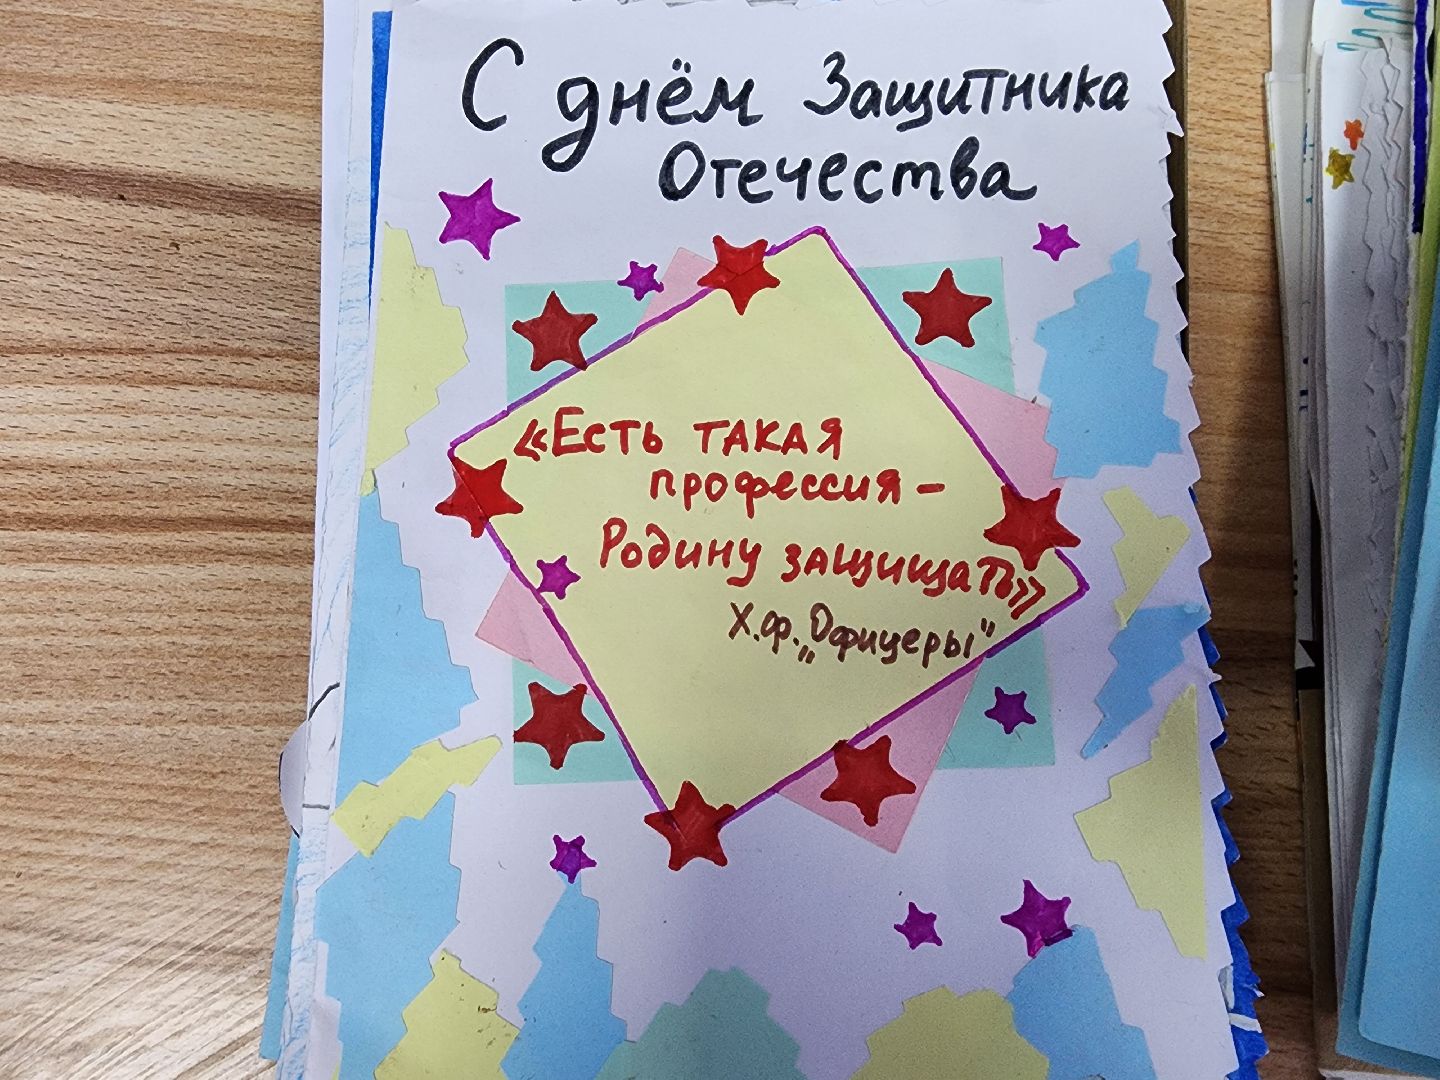 С днём Защитника
Отечества
«Есть такая
профессия –
Родину защищать»
Х.ф. „Офицеры"